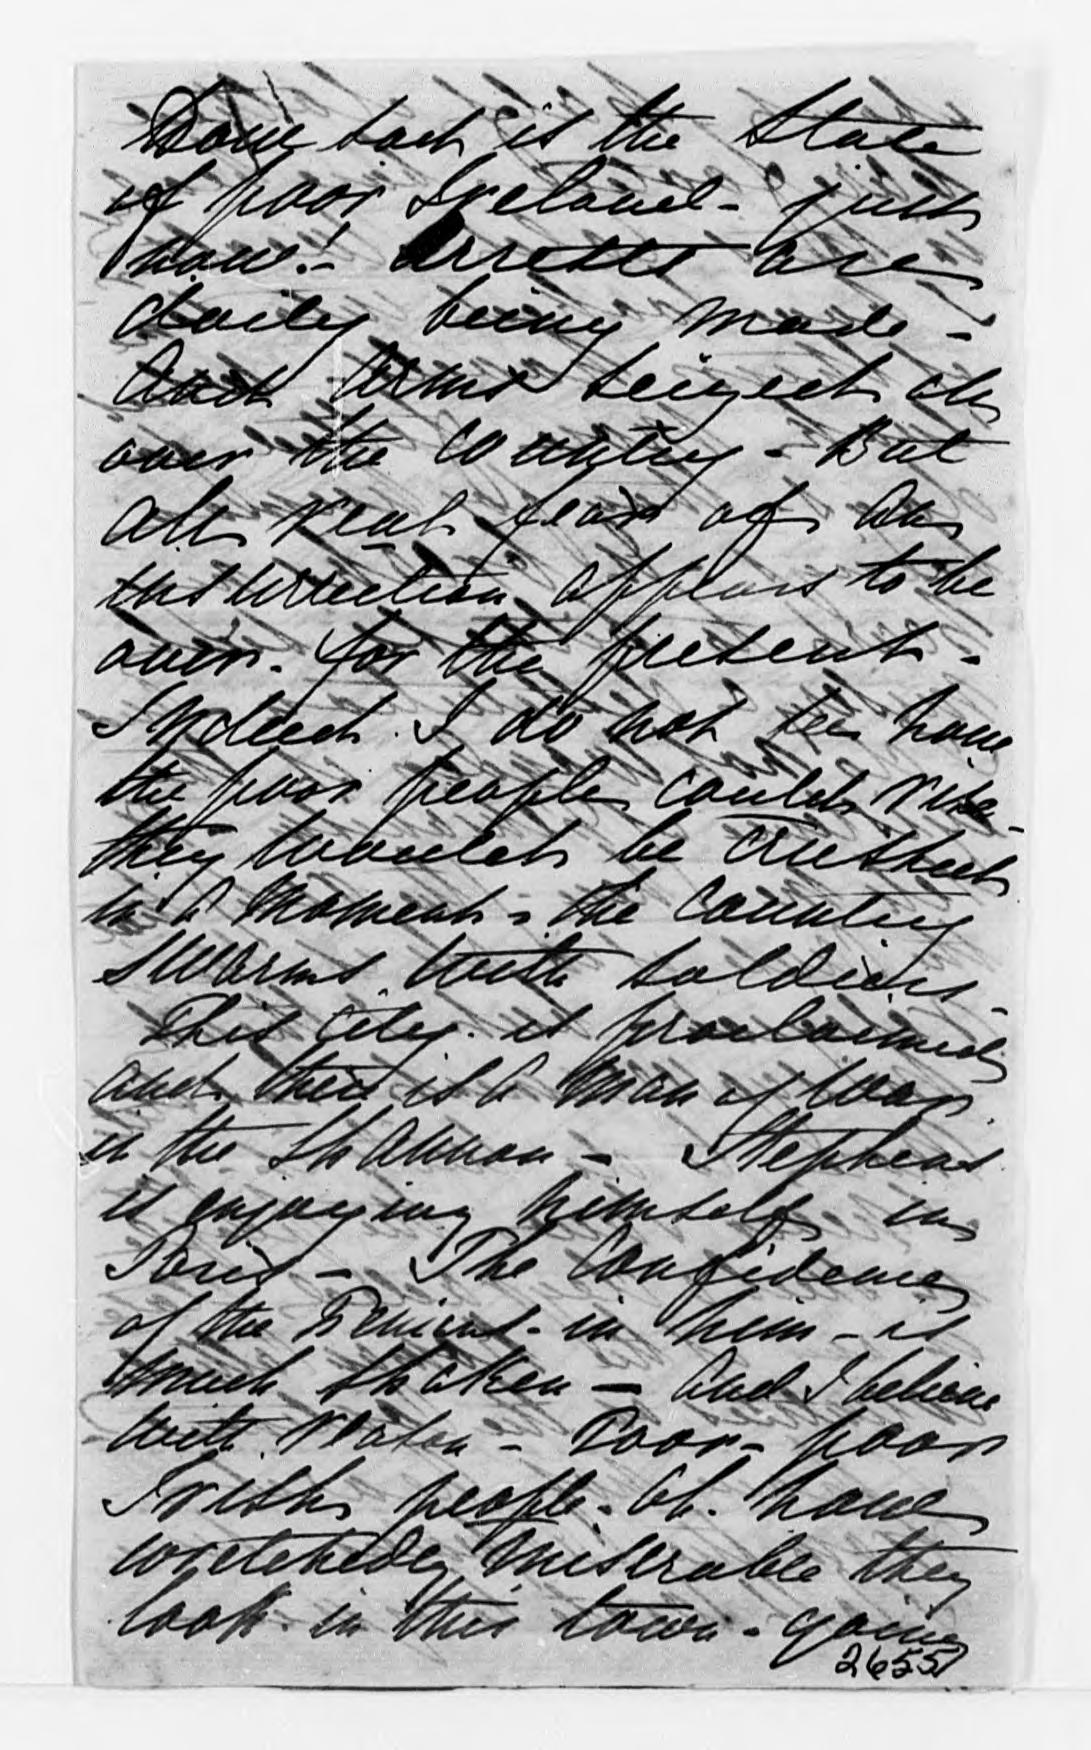 How sad is the State
of poor Ireland - just
now! - Arrests are
daily being made -
And Arms seized all
over the country - But
all real fear of an
insurrection appears to be
over - for the present -
Indeed I do not see how
the poor people could rise -
they would be crushed
in a moment - the country
swarms with soldiers -
This City is proclaimed
and there is a Man of War
in the Shannon - Stephens
is enjoying himself in
Paris - The Confidence
of the Fenians - in him - is
much shaken - And I believe
with reason - Poor - poor
Irish people - oh - how
wretchedly miserable they
look in this town - going
2655